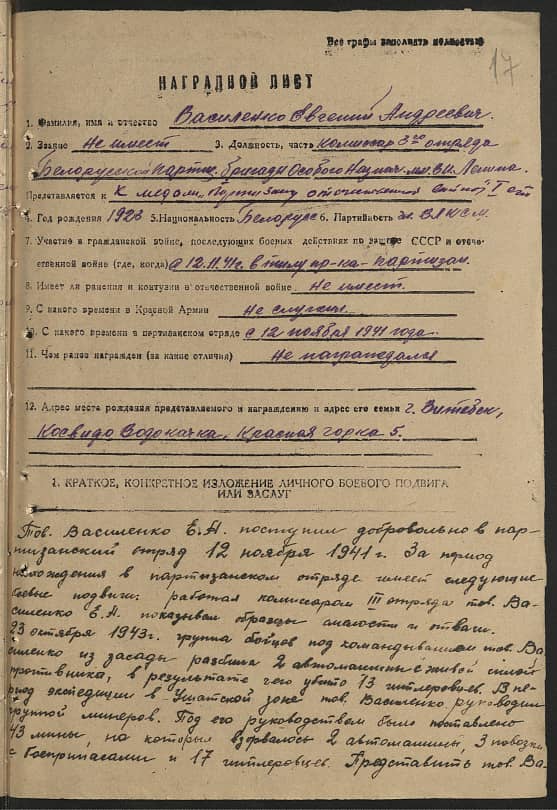 Все графы заполнять полностью
17
НАГРАДНОЙ ЛИСТ
1. Фамилия, имя и отчество Василенко Евгений Андреевич.
2. Звание Не имеет 3. Должность, часть комиссар 3го отряда
Белорусской Партиз. бригады Особого Назнач. им. В.И. Ленина.
Представляется к К медали "Партизану отечественной войны" I ст
4. Год рождения 1923 5. Национальность Белорус 6. Партийность чл. ВЛКСМ.
7. Участие в гражданской войне, последующих боевых действиях по защите СССР и отече-
ственной войне (где, когда) с 12.11.41г. в тылу пр-ка - партизан.
8. Имеет ли ранения и контузии в отечественной войне Не имеет.
9. С какого времени в Красной Армии Не служил.
10. С какого времени в партизанском отряде с 12 ноября 1941 года.
11. Чем ранее награжден (за какие отличия) Не награждался
12. Адрес места рождения представляемого к награждению и адрес его семьи г. Витебск,
Водокачка, Красная горка 5.
1. КРАТКОЕ, КОНКРЕТНОЕ ИЗЛОЖЕНИЕ ЛИЧНОГО БОЕВОГО ПОДВИГА
ИЛИ ЗАСЛУГ
Тов. Василенко Е.А. поступил добровольно в пар-
тизанский отряд 12 ноября 1941 г. За период
нахождения в партизанском отряде имеет следующие
боевые подвиги: работая комиссаром III отряда тов. Ва-
силенко Е.А. показывал образцы смелости и отваги.
23 октября 1943г. группа бойцов под командыванием тов. Ва-
силенко из засады разбила 2 автомашины с живой силой
противника, в результате чего убито 13 гитлеровцев. В пе-
риод экспедиции в Ушатской зоне тов. Василенко, руководил
группой минеров. Под его руководством было поставлено
43 мины, на которых взорвалось 2 автомашины, 3 повозки
с боеприпасами и 17 гитлеровцев. Представить тов. Ва.